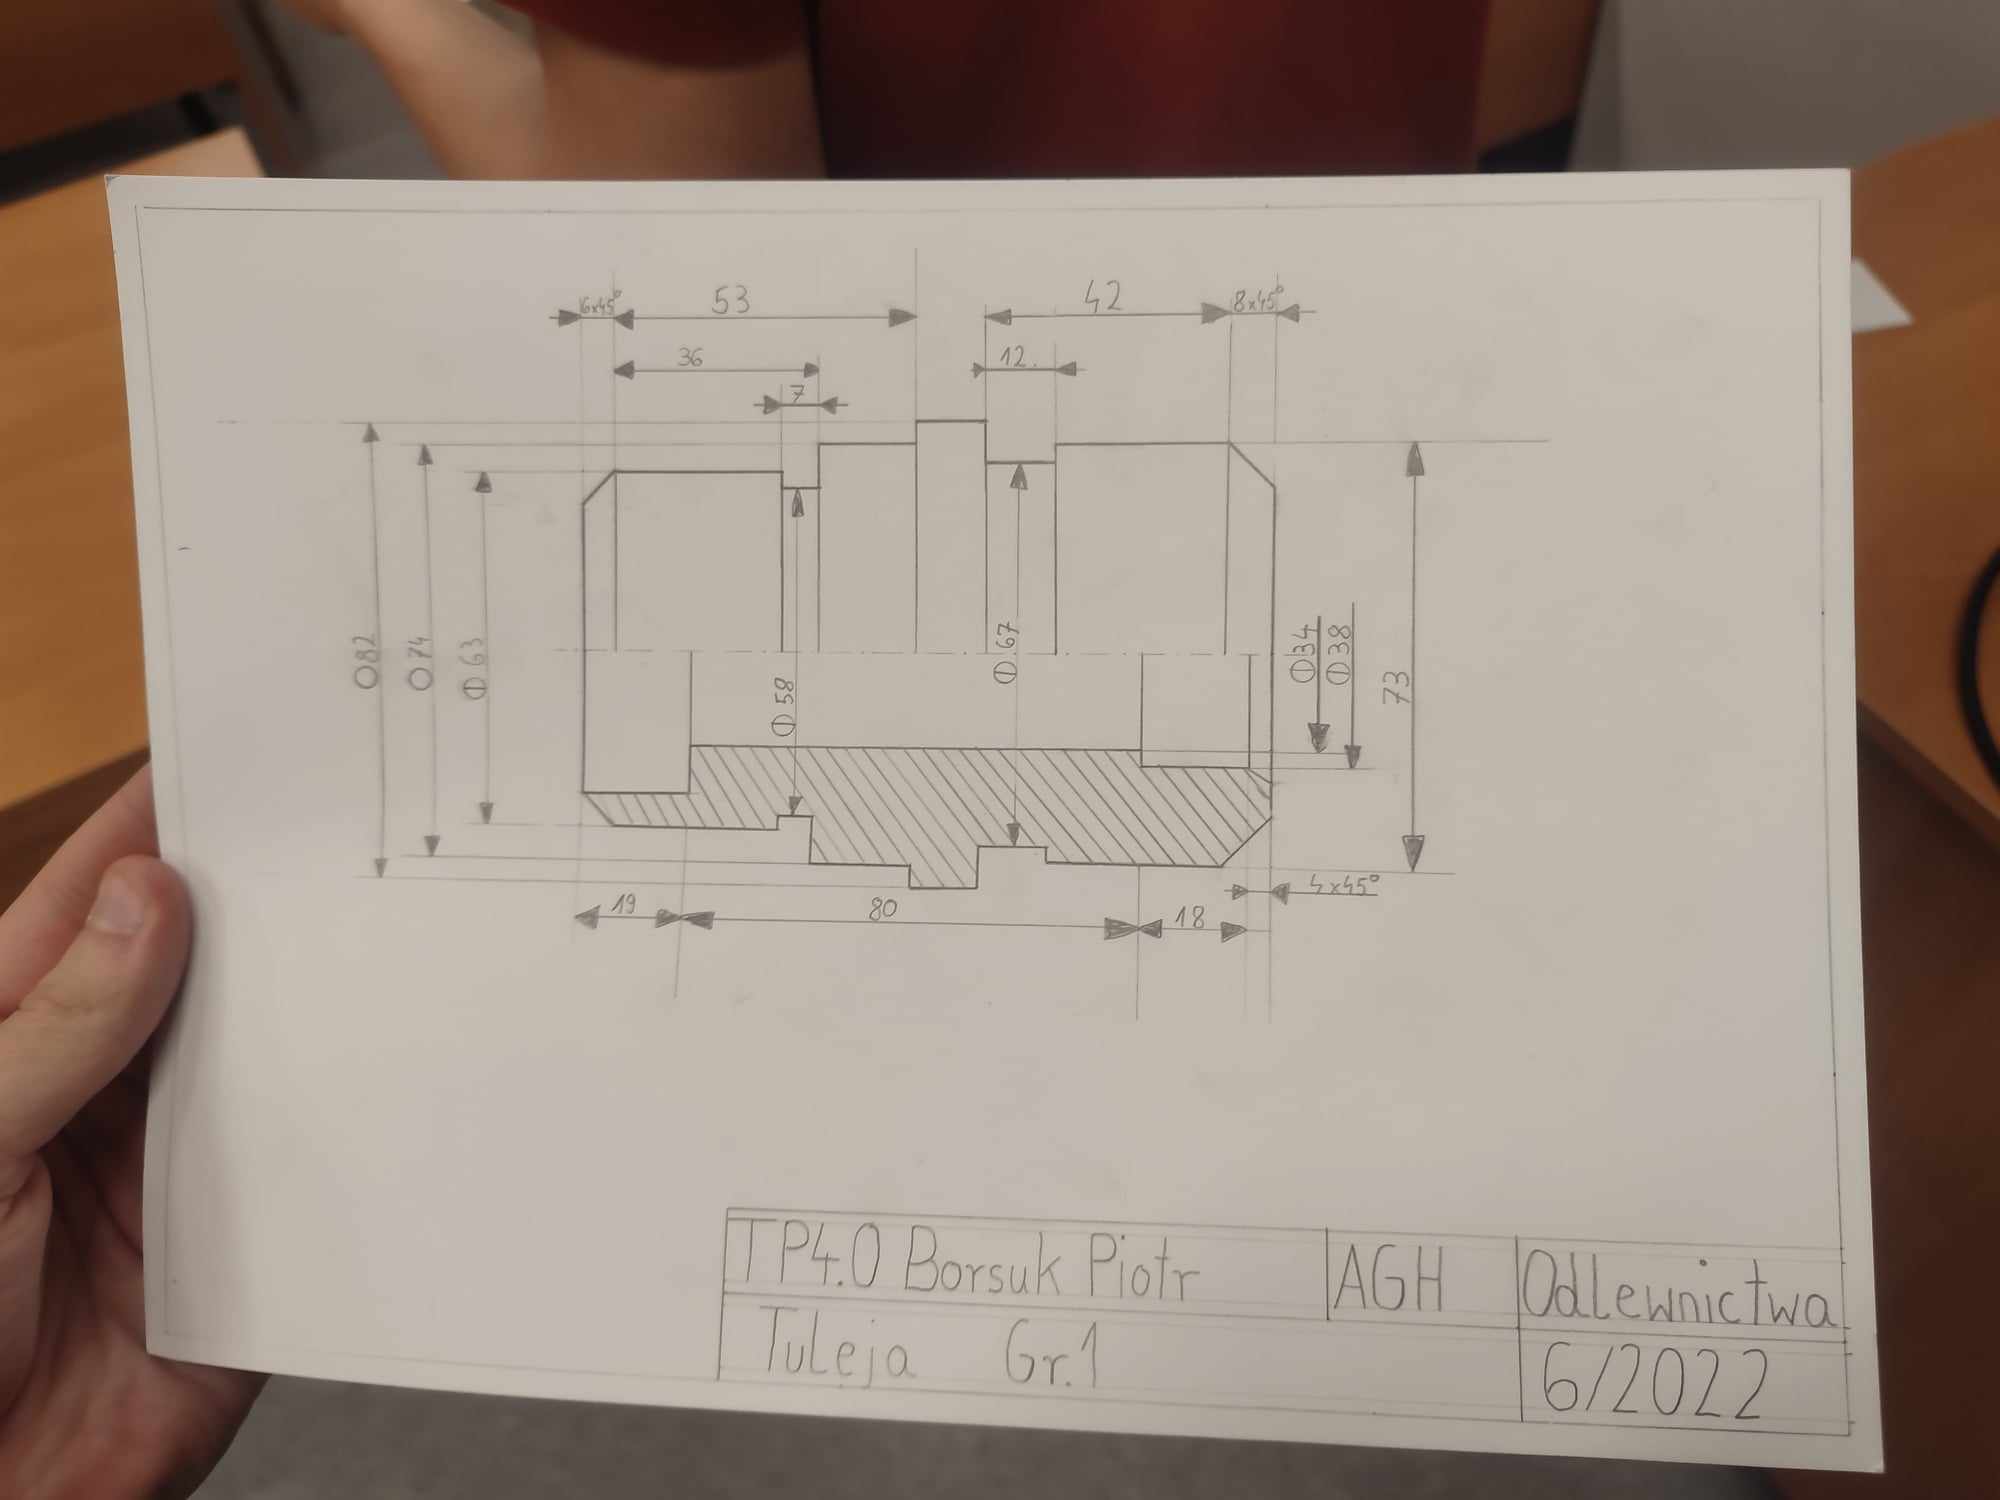 6x45°
53
42
8x45°
36
12
7
O82
O74
Φ63
Φ58
Φ67
Φ34
Φ38
73
19
80
18
4x45°
TP4.0 Borsuk Piotr
AGH
Odlewnictwa
Tuleja Gr.1
6/2022